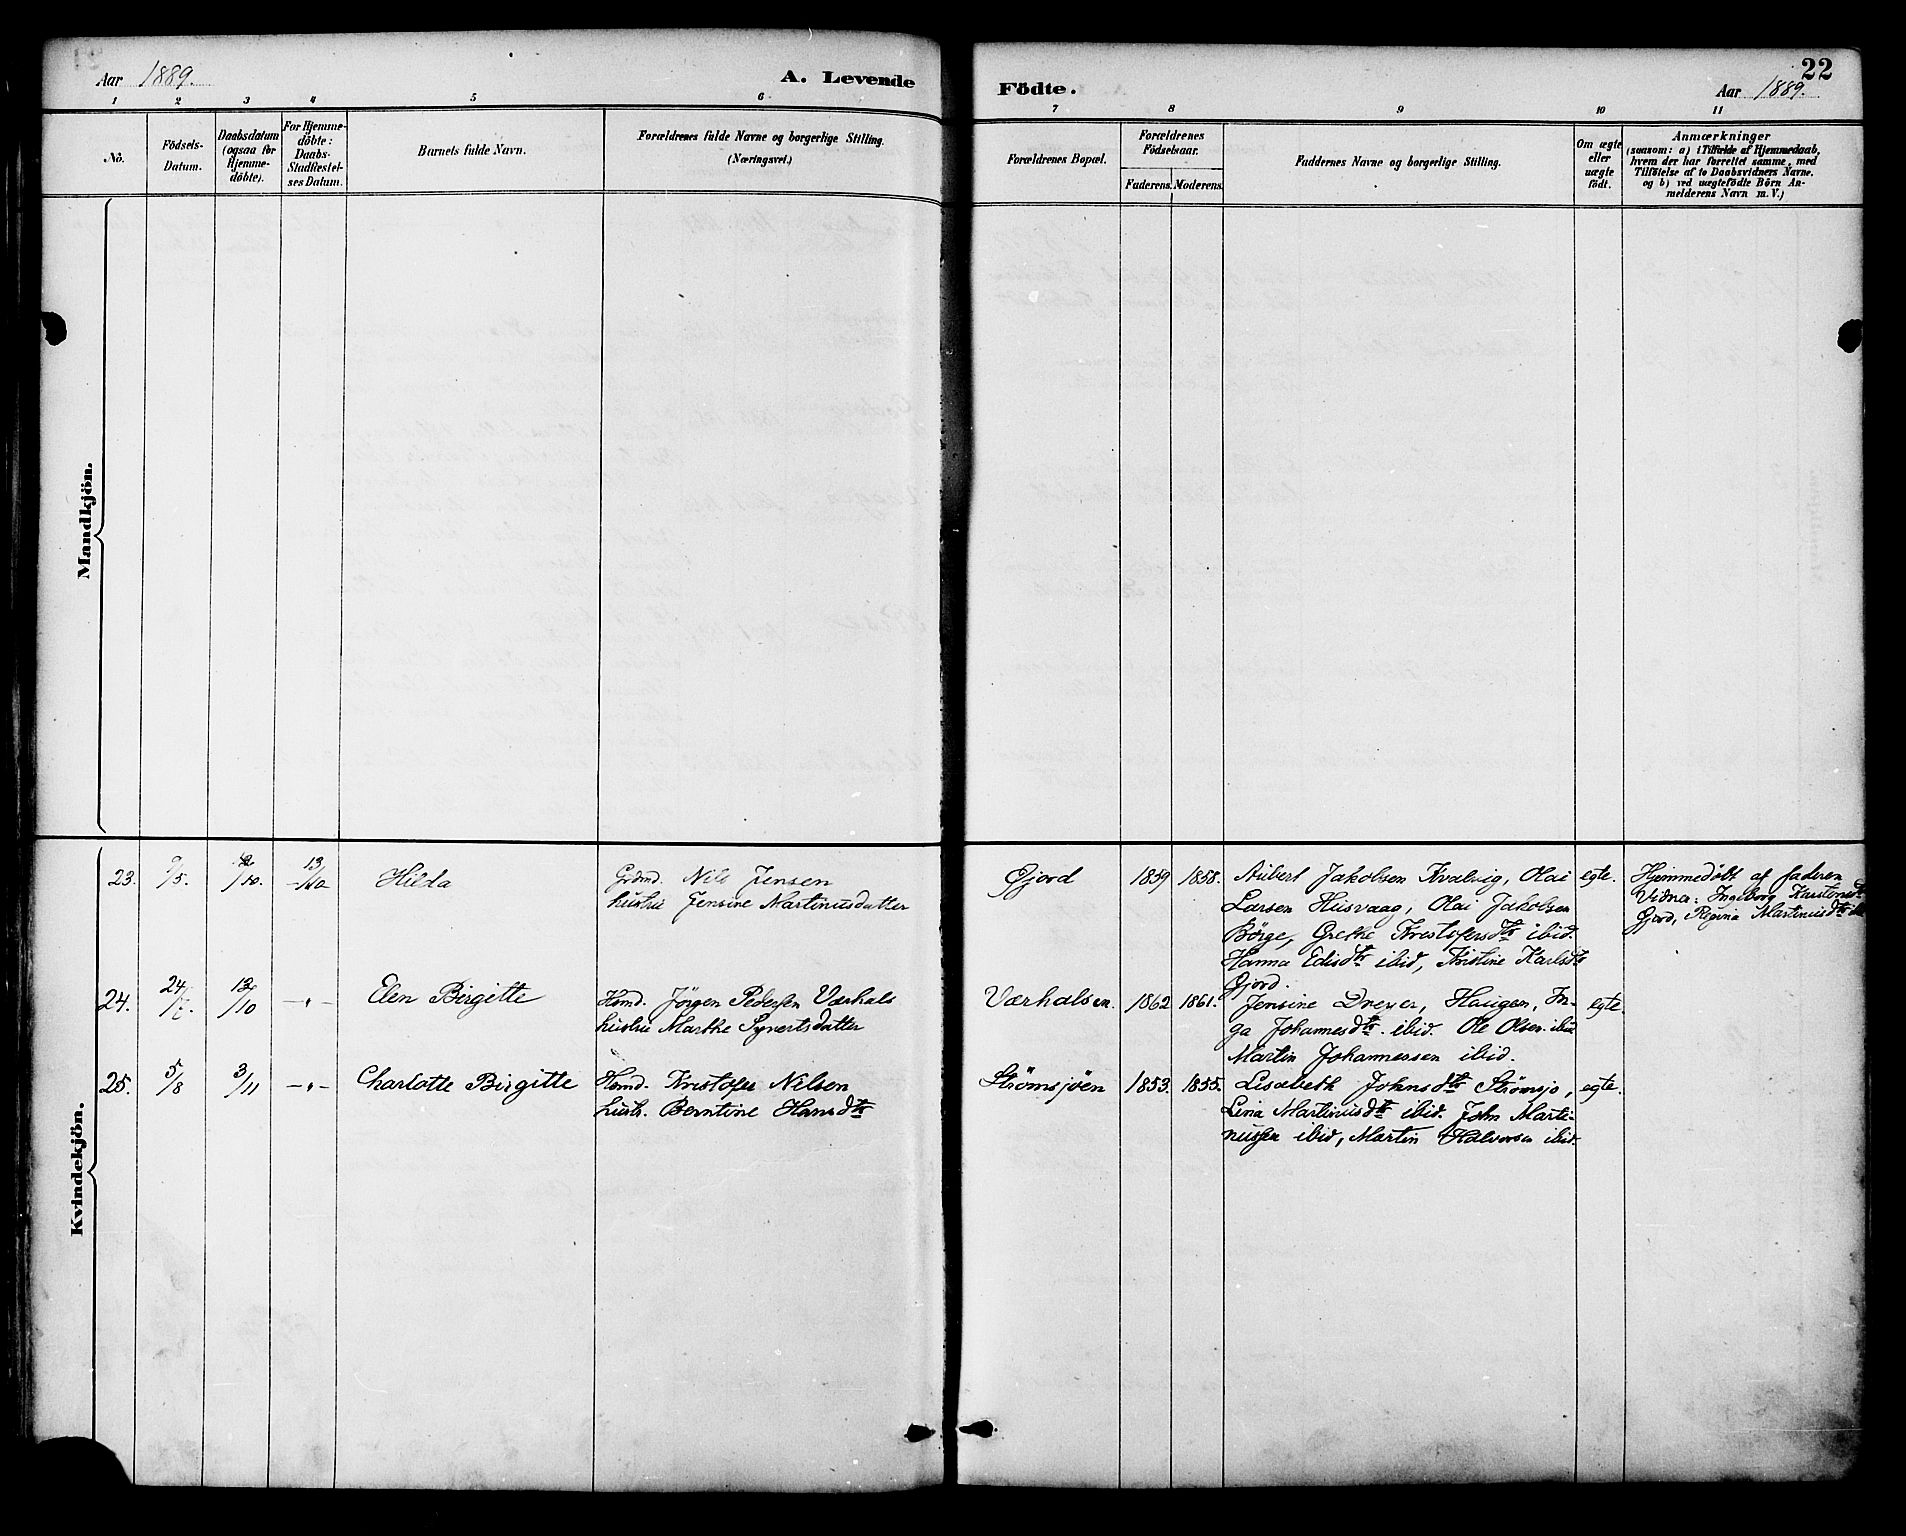 Aar 1889.
A. Levende
Födte.
Aar 1889.
22
1 2 3 4 5 6 7 8 9 10 11
No.
Födsels-
Datum.
Daabsdatum
(ogsaa for
Hjemme-
döbte).
For Hjemme-
döbte:
Daabs-
Stadfæstel-
ses Datum.
Barnets fulde Navn.
Forældrenes fulde Navne og borgerlige Stilling.
(Næringsvei.)
Forældrenes Bopæl.
Forældrenes
Födselsaar.
Faderens. Moderens.
Faddernes Navne og borgerlige Stilling.
Om ægte
eller
uægte
født.
Anmærkninger
(saasom: a) i Tilfælde af Hjemmedaab,
hvem der har forrettet samme, med
Tilföielse af to Daabsvidners Navne.
og b) ved uægtefödte Börn An-
melderens Navn m. V.)
Mandkjön.
Kvindekjön.
23.
/5.
/10.
13/10
Hilda
Nils Jensen
hustru Jensine Martinusdatter
Gjord
1859
1858.
Aubert Jakobsen Kvalvig, Olai
Larsen Husvaag, Olai Jakobsen
Börge, Grethe Kristofersdtr ibid.
Hanna Edisdtr ibid, Kristine Karlsdtr
Gjord.
egte.
Hjemmedöbt af faderen
Vidner: Ingeborg Karstensdtr
Gjord, Regina Martinusdtr
24.
24/
13/10
-"-
Elen Birgitte
Hsmd. Jörgen Pedersen Værhals
hustru Marthe Syvertsdatter
Værhalsen.
1862
1861.
Jensine Dreyer, Haugen, In-
ga Johannesdtr. ibid. Ole Olsen ibid
Martin Johannessen ibid.
egte.
25.
5/8
3/11
-"-
Charlotte Birgitte
Hsmd. Kristofer Nilsen
hustr. Berntine Hansdtr
Strömsjöen
1853.
1855.
Lisabeth Johnsdtr Strömsjo,
Lina Martinusdtr ibid. John Marti-
nussen ibid, Martin Halvorsen ibid.
egte.